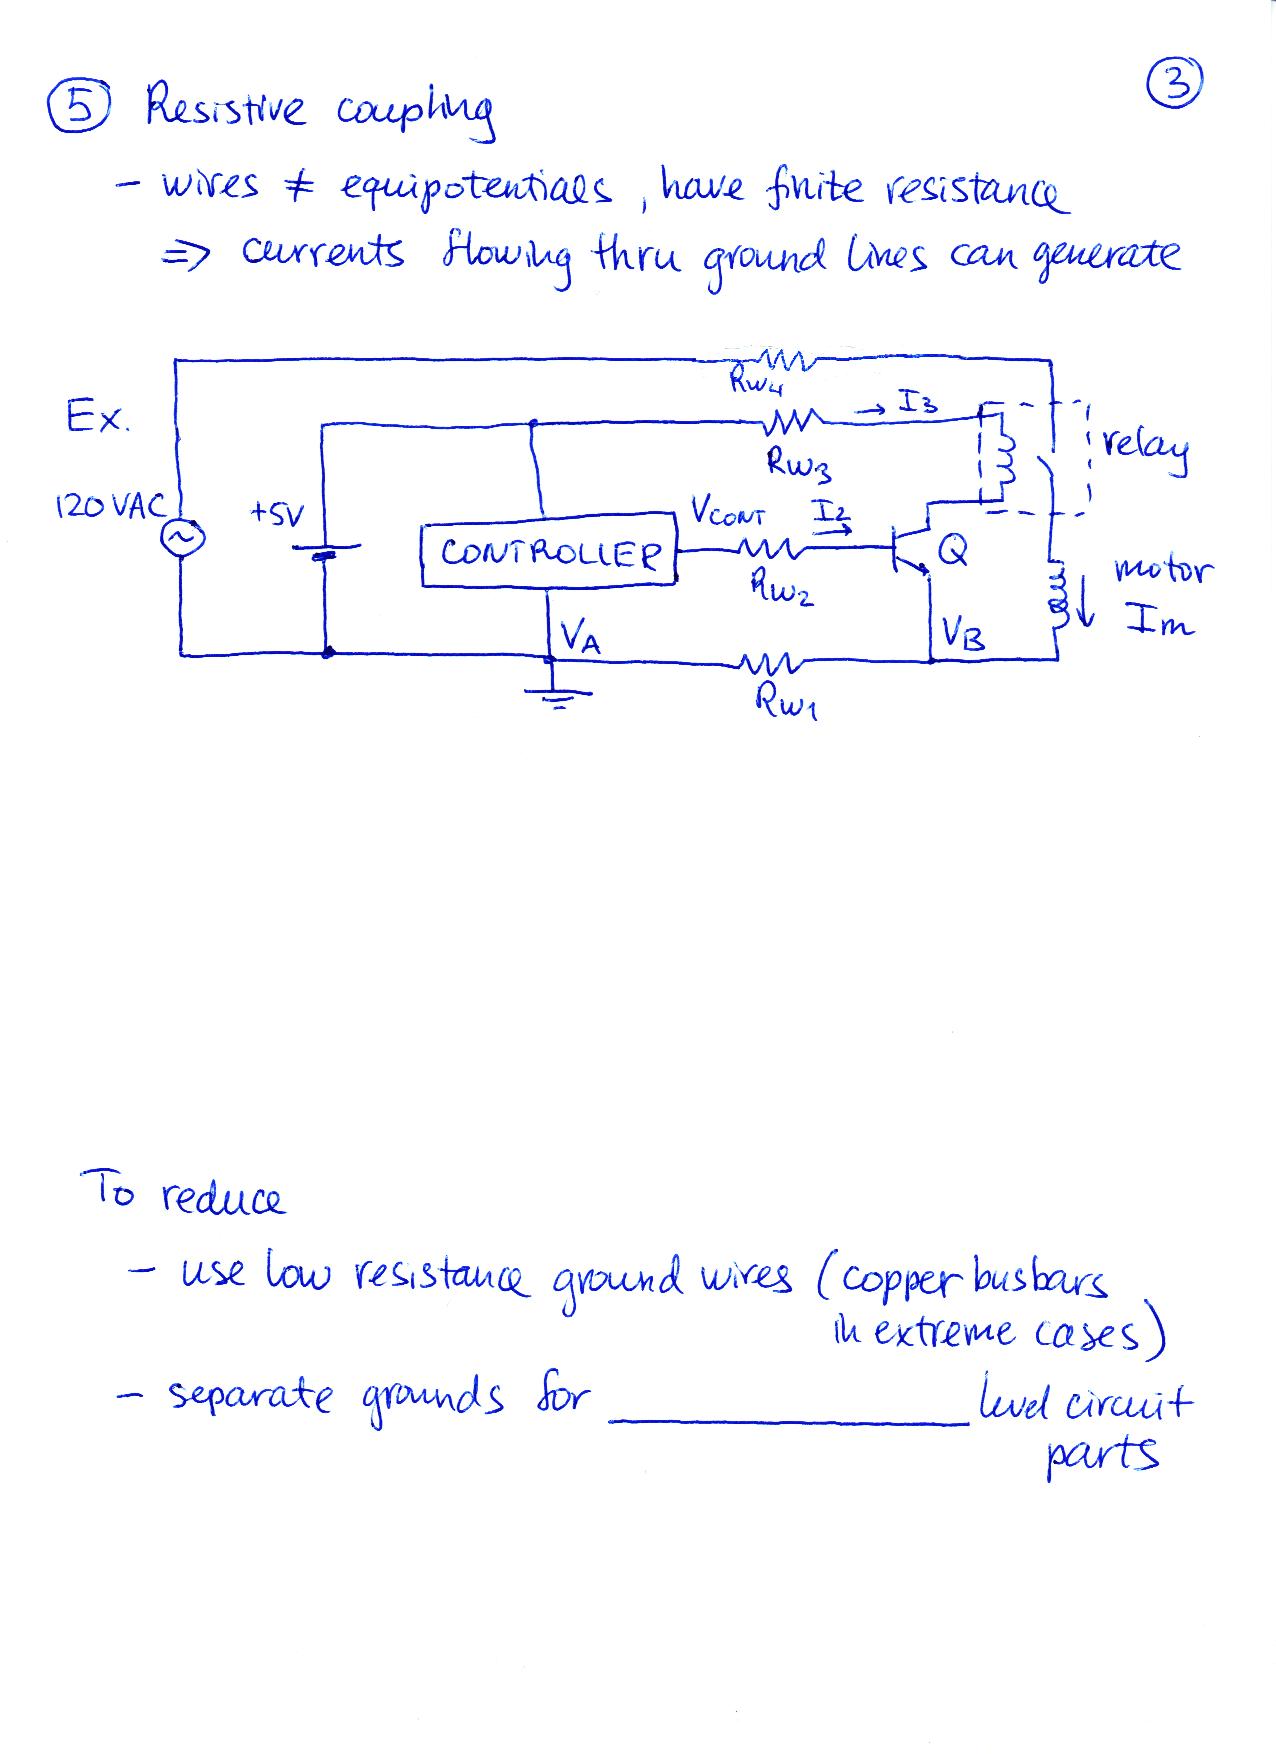 3
5 Resistive coupling
- wires ≠ equipotentials, have finite resistance
⇒ currents flowing thru ground lines can generate
Ex.
RW4
I3
RW3
relay
120 VAC
+5V
VCONT
I2
CONTROLLER
RW2
Q
motor
Im
VA
VB
RW1
To reduce
- use low resistance ground wires (copper busbars
in extreme cases)
- separate grounds for ____________ level circuit
parts